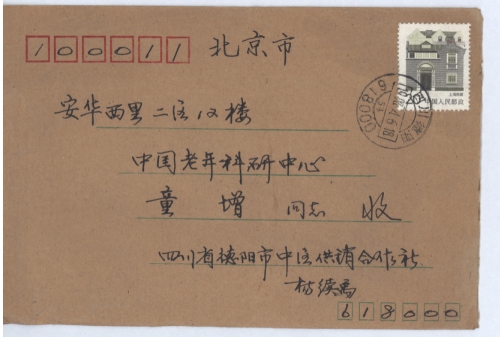 100011 北京市
安华西里二区12楼
中国老年科研中心
童增 同志 收
四川省德阳市中区供销合作社
618000
上海民居
中国人民邮政